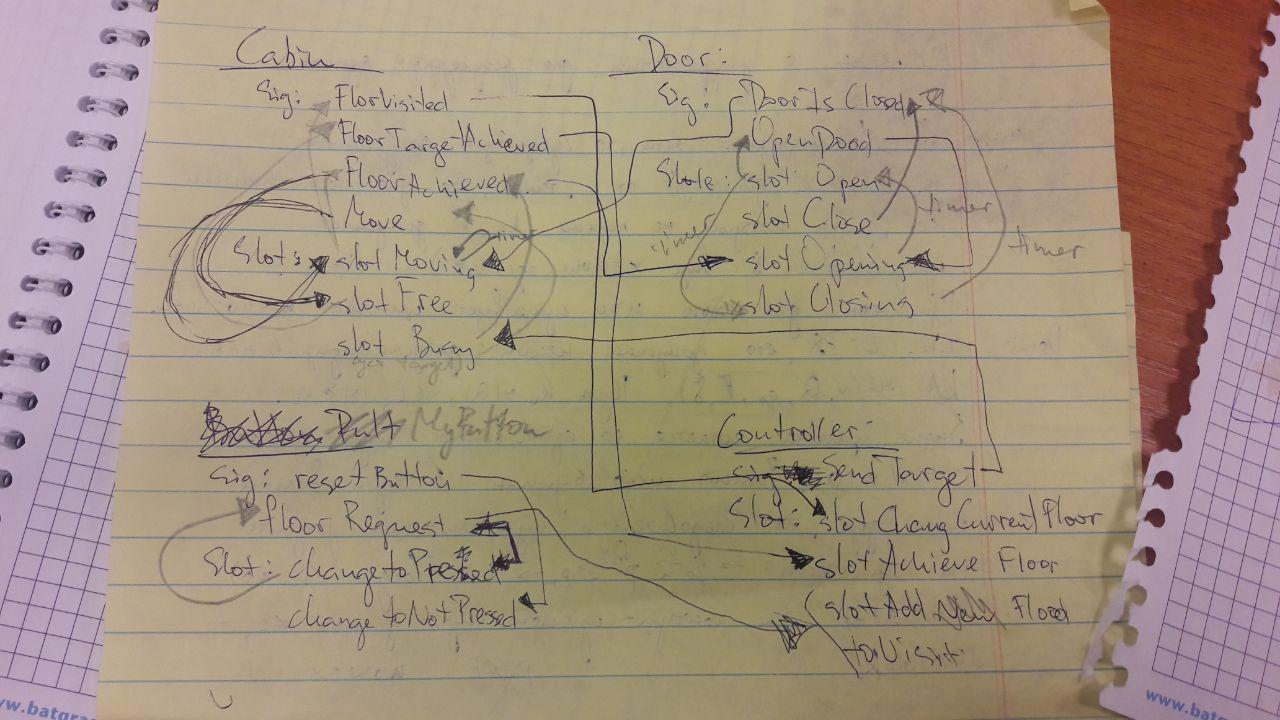 Cabin
Sig: FlorVisited
FloorTargetAchieved
FloorAchieved
Move
timer
Slots: slot Moving
slot Free
slot Busy
Door:
Sig: DoorIs Closed
OpenDood
Slots: slot Open
slot Close
timer
timer
timer
slot Opening
slot Closing
Pult MyButton
Sig: reset Button
floor Request
Slot: change to Pressed
change to Not Pressed
Controller:
sig Send Target
Slot: slot Chang Current Floor
slot Achieve Floor
slot Add New Flood
to Visit
www.batgra
www.batg